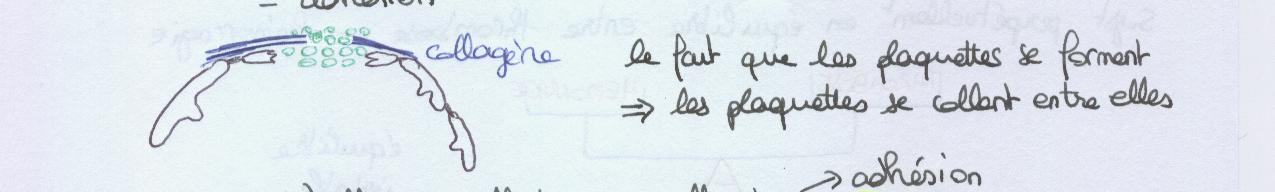 = adhésion
collagène
le fait que les plaquettes se forment
⇒ les plaquettes se collent entre elles
→ adhésion